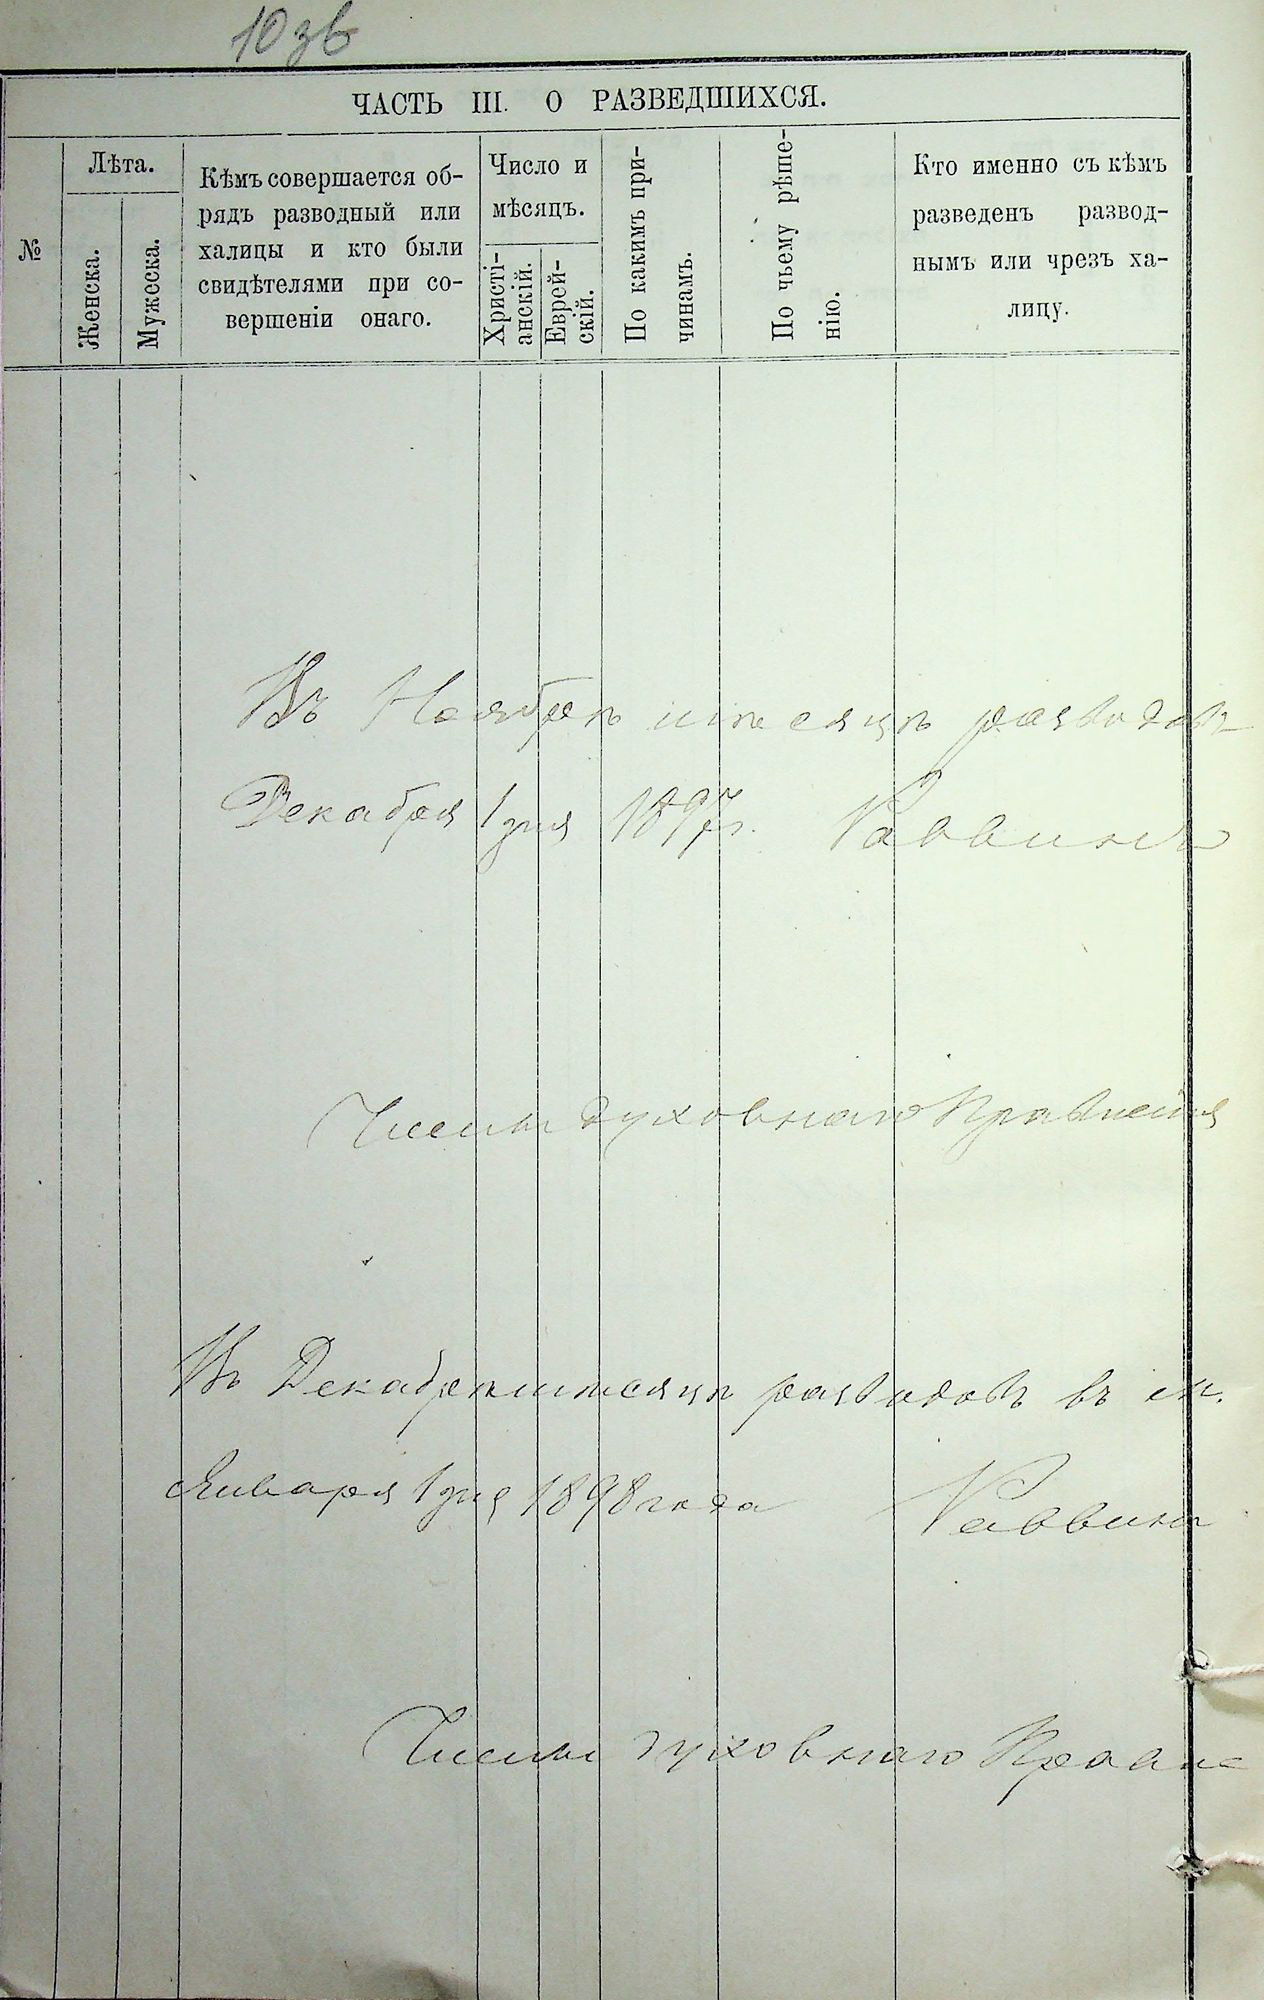 10 зв
ЧАСТЬ III. О РАЗВЕДШИХСЯ.
№
Лѣта.
Женска.
Мужеска.
Кѣмъ совершается об-
рядъ разводный или
халицы и кто были
свидѣтелями при со-
вершеніи онаго.
Число и
мѣсяцъ.
Христі-
анскій.
Еврей-
скій.
По какимъ при-
чинамъ.
По чьему рѣше-
нію.
Кто именно съ кѣмъ
разведенъ развод-
нымъ или чрезъ ха-
лицу.
Въ Ноябрѣ мѣсяцѣ разводовъ
Декабря 1 дня 1897 г. Раввинъ
Члены духовнаго Правленія
Въ Декабрѣ мѣсяцѣ разводовъ въ
Января 1 дня 1898 года Раввинъ
Члены духовнаго Правле